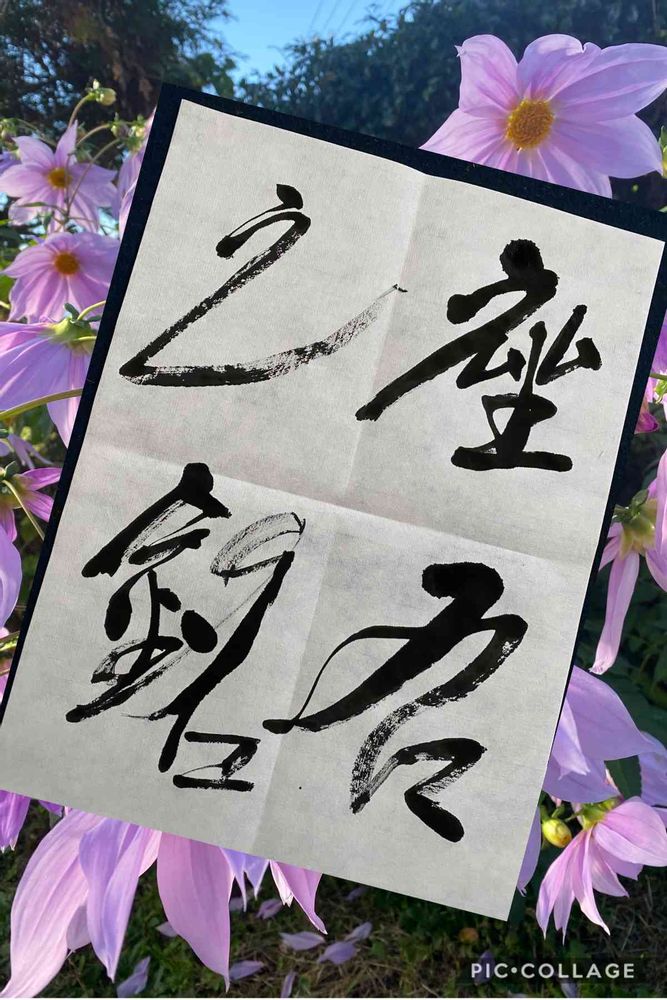 座右
之銘
PIC•COLLAGE